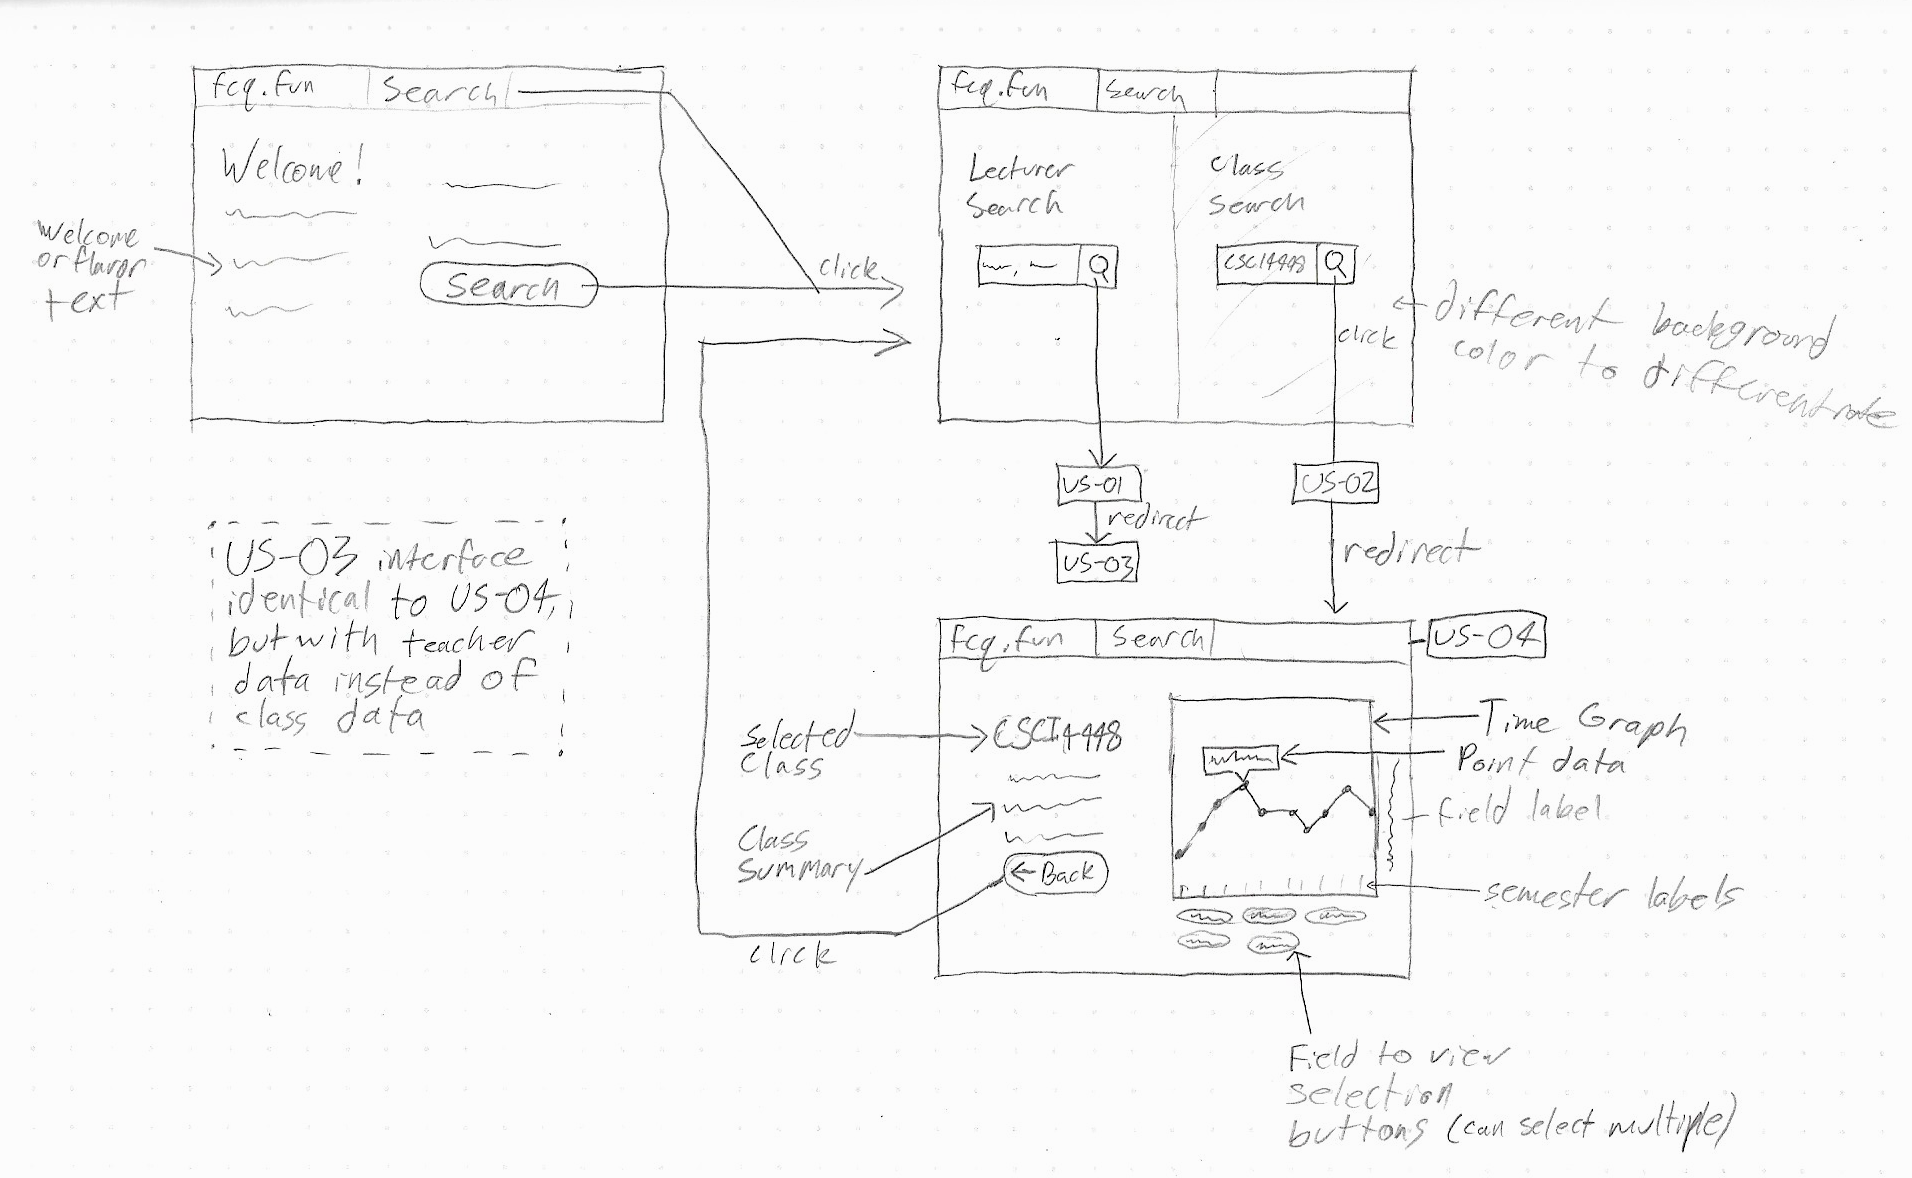 fcq.fun
Search
Welcome!
Search
Welcome
or flavor
text
click
fcq.fun
Search
Lecturer
Search
Class
Search
CSCI4448
click
different background
color to differentrate
US-01
redirect
US-03
US-02
redirect
US-03 interface
identical to US-04,
but with teacher
data instead of
class data
fcq.fun
Search
US-04
Selected
Class
CSCI4448
Class
Summary
← Back
click
Time Graph
Point data
field label
semester labels
Field to view
selection
buttons (can select multiple)